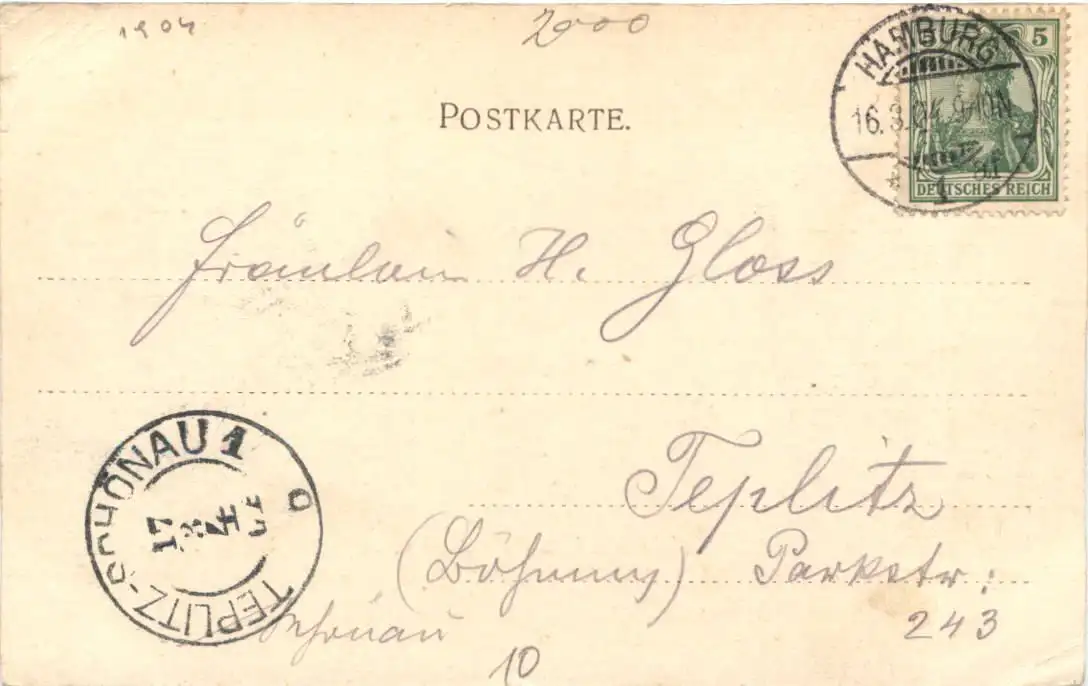 1904
2000
HAMBURG
16.3.04. 9-10N
1
5
DEUTSCHES REICH
POSTKARTE.
Fräulein H. Gloss
Teplitz
(Böhmen) Parkstr:
243
Schönau
TEPLITZ-SCHÖNAU 1
17
3
4
10